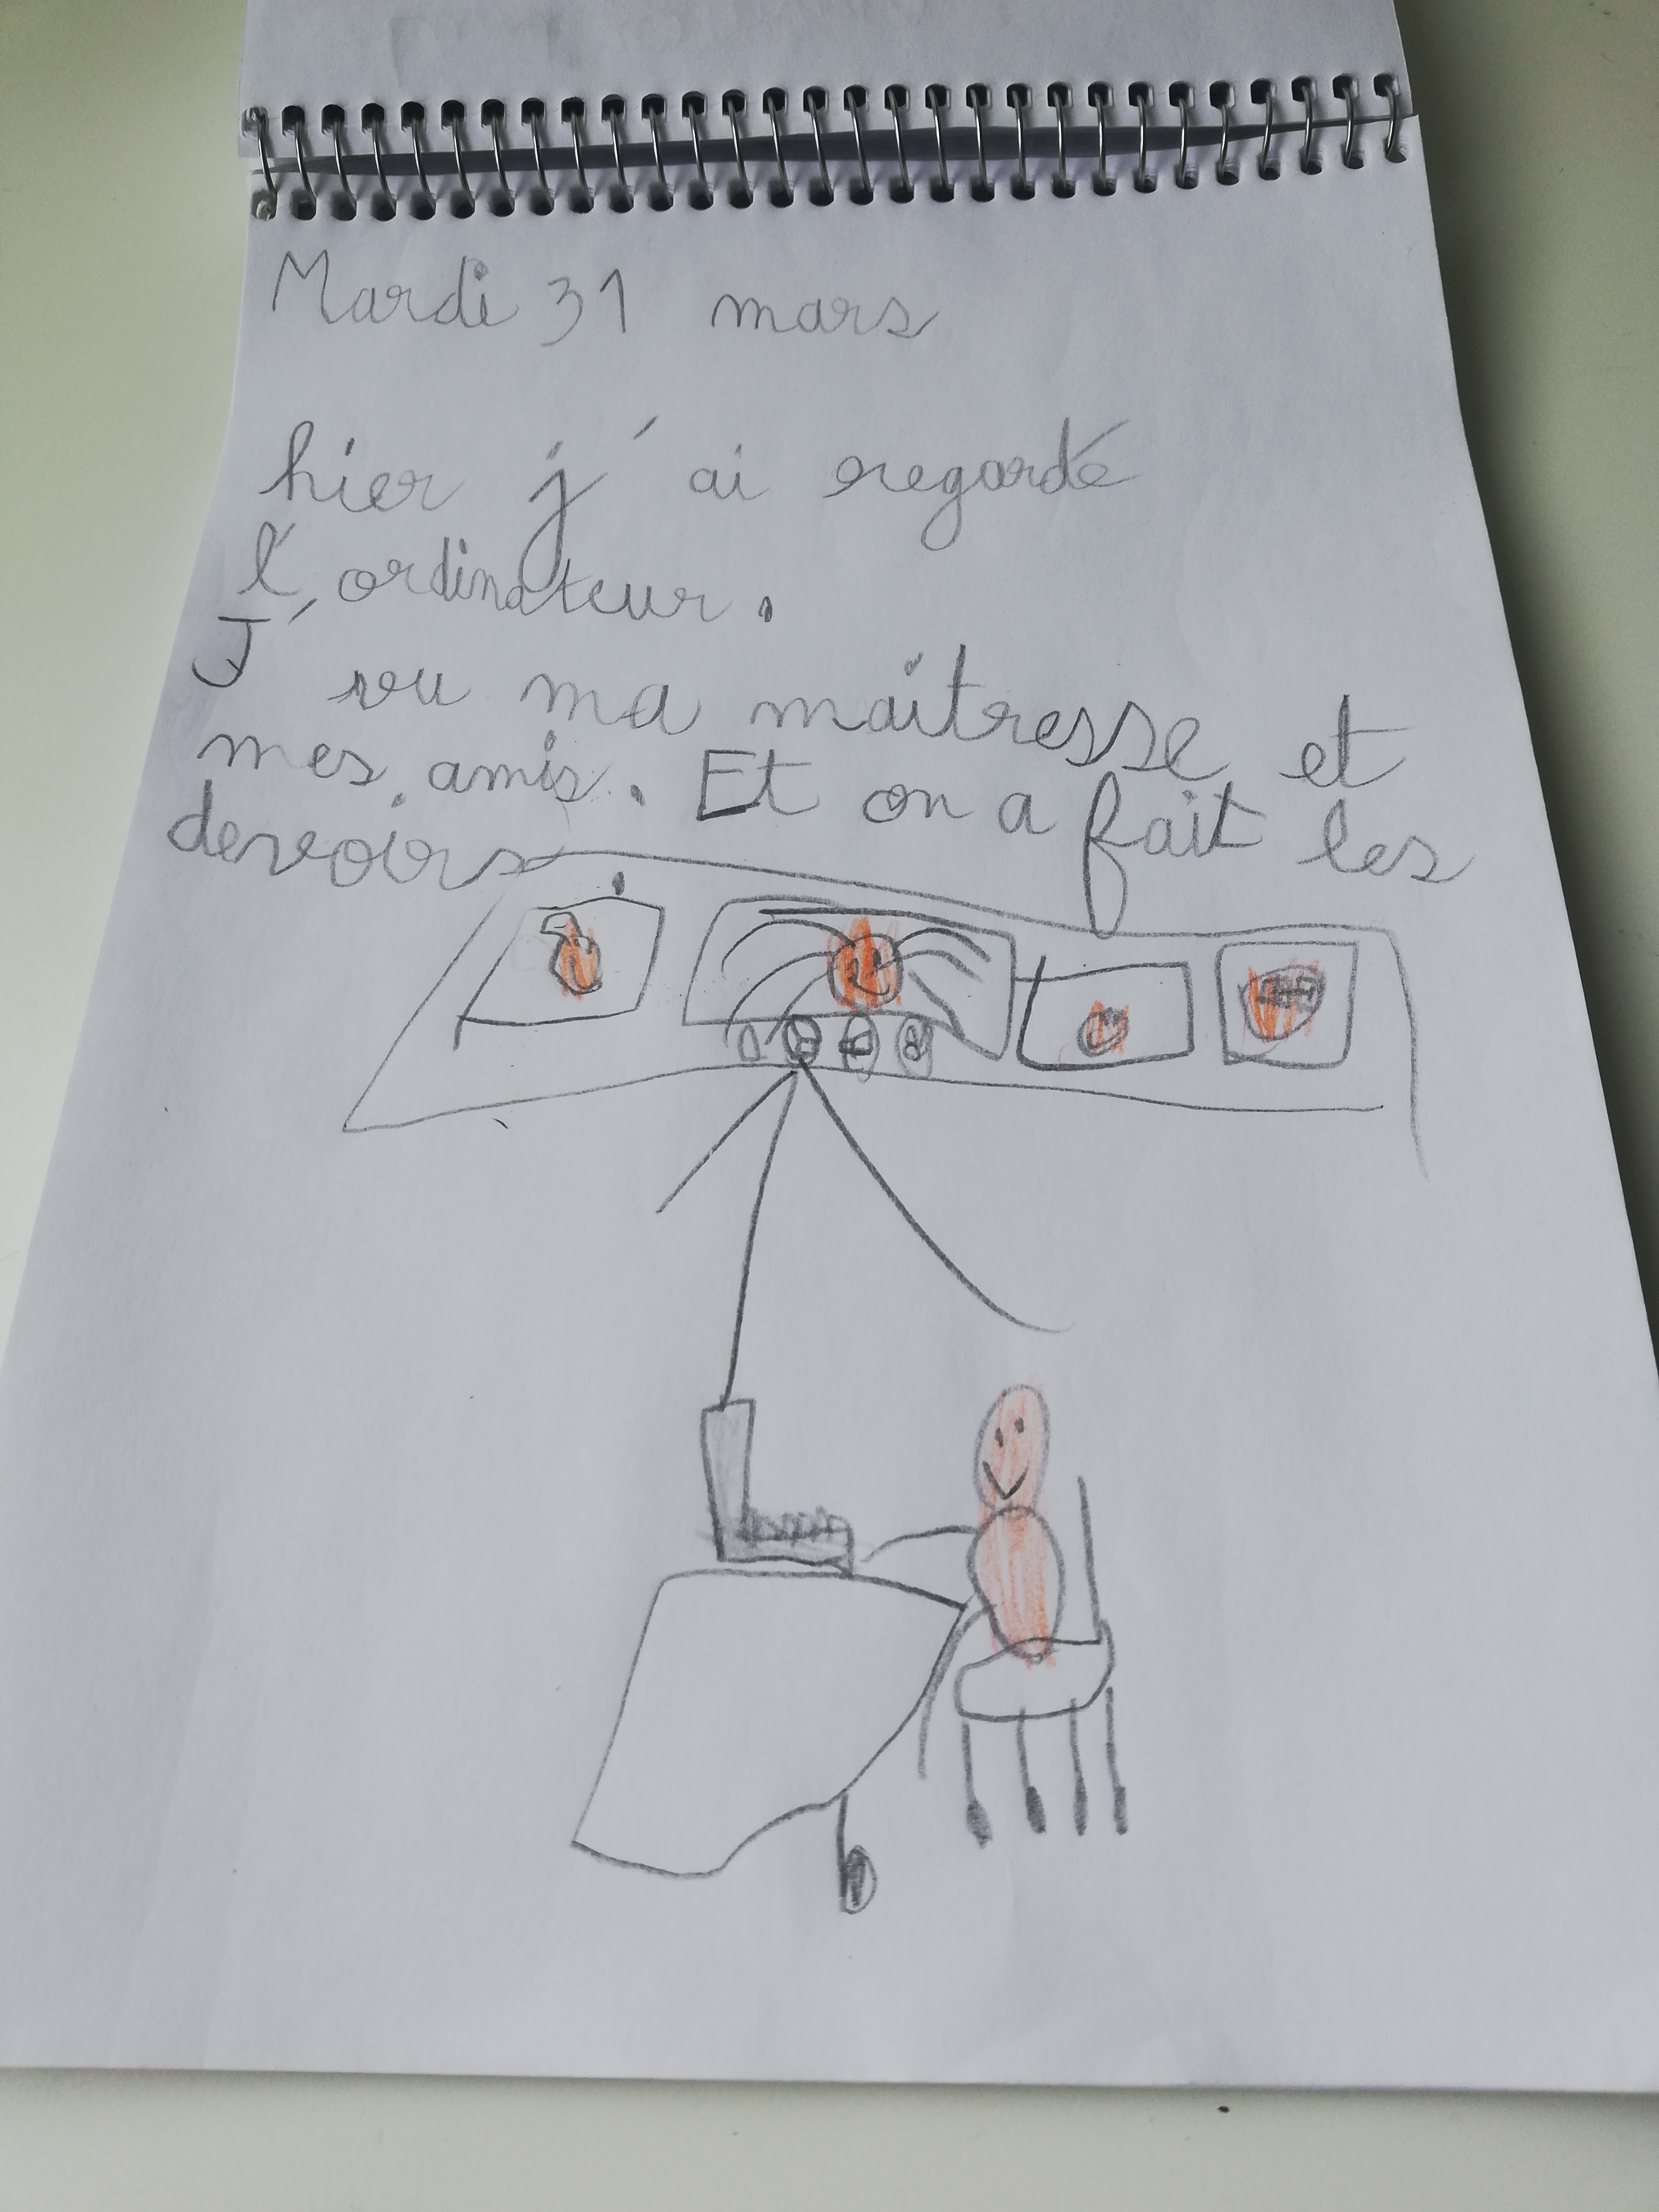 Mardi 31 mars
hier j'ai regardé
l'ordinateur.
J' vu ma maîtresse et
mes amis. Et on a fait les
devoirs.